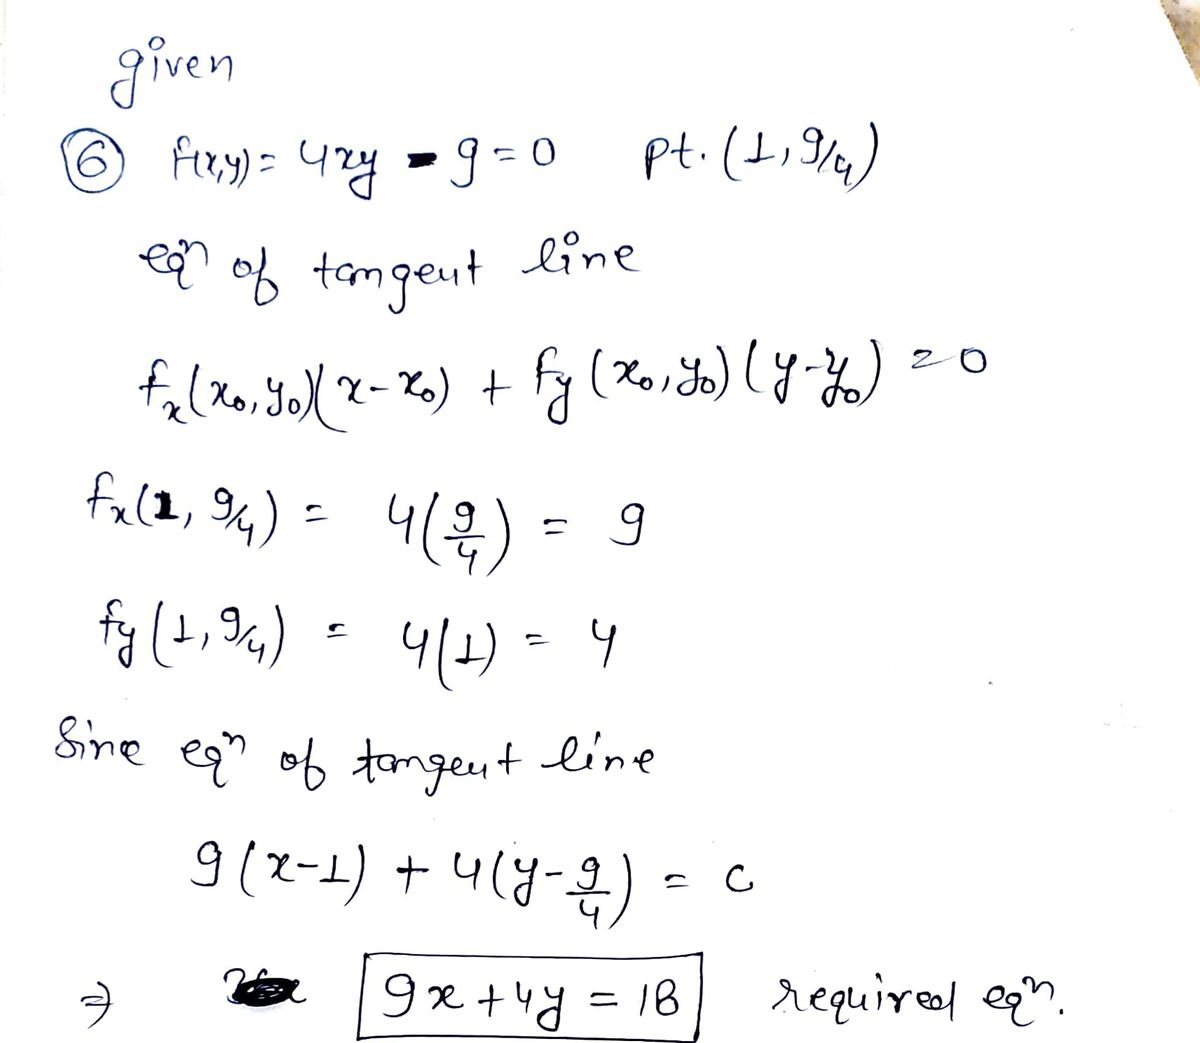 given
⑥ f(x,y) = 4xy - 9 = 0 pt. (1, 9/4)
eqn of tangent line
fx(x0, y0)(x - x0) + fy (x0, y0) (y - y0) = 0
fx(1, 9/4) = 4(9/4) = 9
fy (1, 9/4) = 4(1) = 4
Sine eqn of tangent line
9(x-1) + 4(y - 9/4) = 0
⇒ 9x + 4y = 18 required eqn.